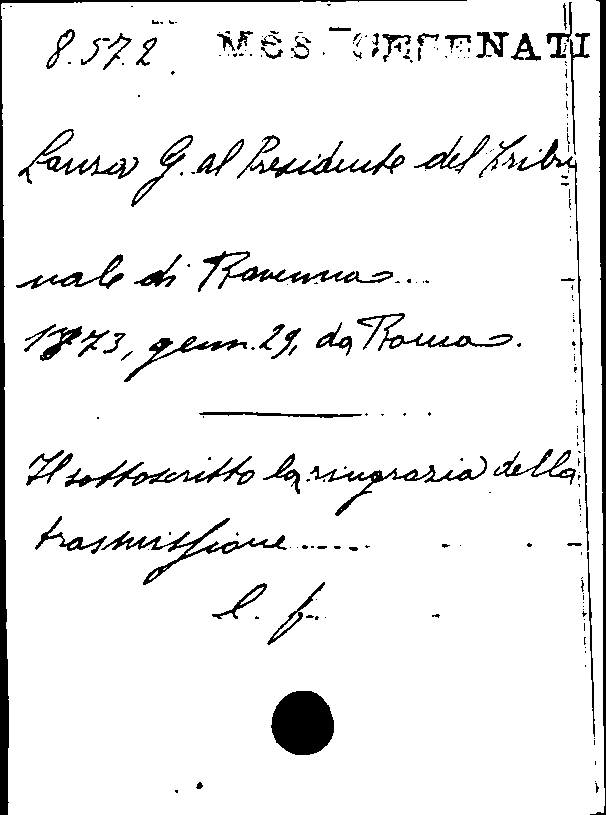 8.572. MSS. CESENATI
Laura G. al Presidente del Tribu
nale di Ravenna...
1873, genn. 29, da Roma.
Il sottoscritto la ringrazia della
trasmissione.....
l. f.